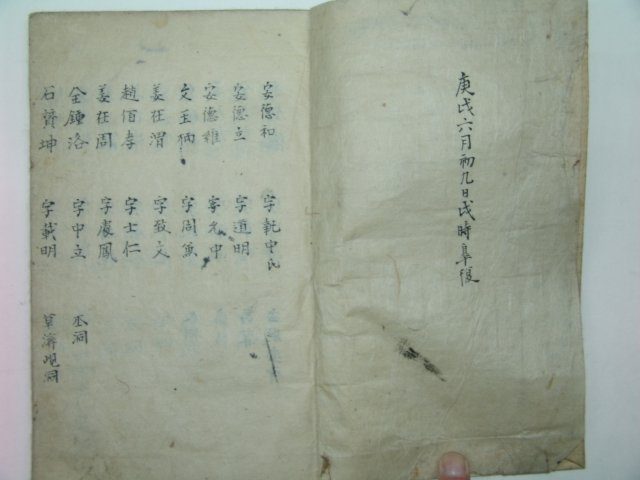 庚戌六月初九日戌時皐復
安德和 字乾中氏
安德立 字道明
安德雉 字允中
文玉炳 字周兼
姜在渭 字敬文
趙佰孝 字士仁
姜在周 字虞鳳
全鍾洛 字中立 丞洞
石贊坤 字載明 草溪峴洞